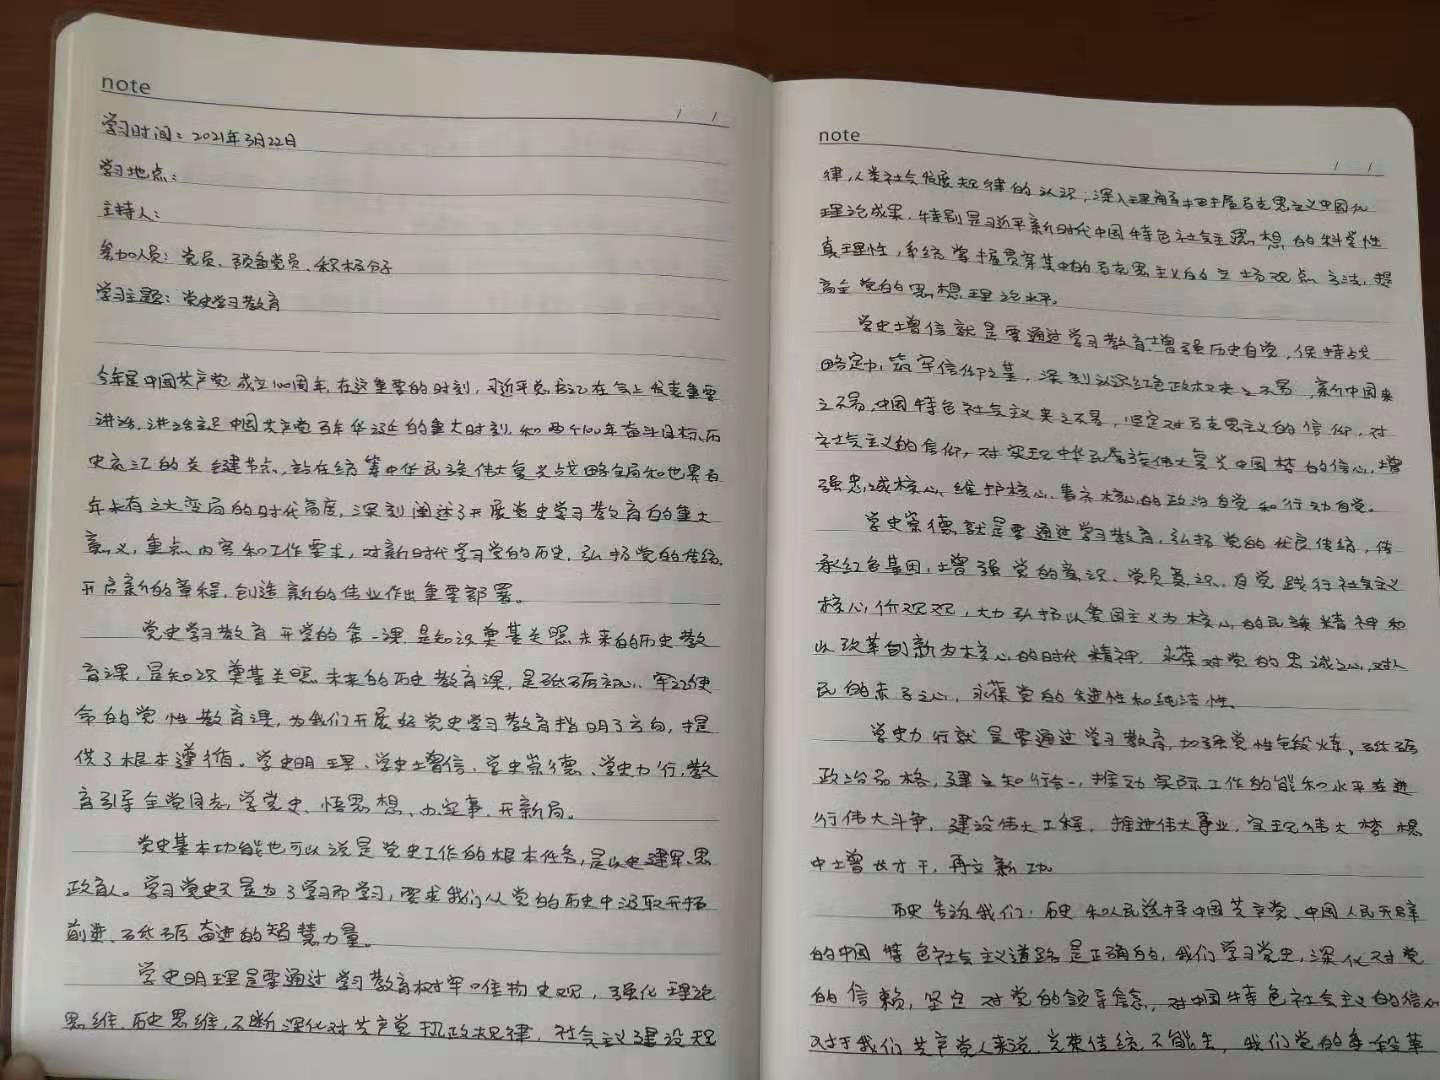 note
/ /
学习时间：2021年3月22日
学习地点：
主持人：
参加人员：党员、预备党员、积极分子
学习主题：党史学习教育
今年是中国共产党成立100周年，在这重要的时刻，习近平总书记在会上发表重要
讲话，讲话立足中国共产党百年华诞的重大时刻，和两个100年奋斗目标历
史交汇的关键节点，站在统筹中华民族伟大复兴战略全局和世界百
年未有之大变局的时代高度，深刻阐述了开展党史学习教育的重大
意义，重点内容和工作要求，对新时代学习党的历史，弘扬党的传统，
开启新的章程，创造新的伟业作出重要部署。
党史学习教育开学的第一课，是知识奠基关照未来的历史教
育课，是知识奠基关照未来的历史教育课，是砥砺初心、牢记使
命的党性教育课，为我们开展好党史学习教育指明了方向，提
供了根本遵循。学史明理、学史增信、学史崇德、学史力行，教
育引导全党同志，学党史、悟思想、办实事、开新局。
党史基本功能也可以说是党史工作的根本任务，是以史建军、思
政育人。学习党史不是为了学习而学习，要求我们从党的历史中汲取开拓
前进、砥砺奋进的智慧力量。
学史明理是要通过学习教育树牢唯物史观，强化理论
思维、历史思维，不断深化对共产党执政规律，社会主义建设规
note
/ /
律，人类社会发展规律的认识；深入理解马克思主义中国化
理论成果，特别是习近平新时代中国特色社会主思想的科学性
真理性，系统掌握贯穿其中的马克思主义的立场观点方法，提
高全党的思想理论水平。
学史增信就是要通过学习教育，增强历史自觉，保持战
略定力，筑牢信仰之基，深刻认识红色政权来之不易，新中国来
之不易，中国特色社会主义来之不易，坚定对马克思主义的信仰，对
社会主义的信仰，对实现中华民族伟大复兴中国梦的信心，增
强忠诚核心、维护核心、看齐核心的政治自觉和行动自觉。
学史崇德，就是要通过学习教育，弘扬党的优良传统，传
承红色基因，增强党的意识、党员意识，自觉践行社会主义
核心价观观，大力弘扬以爱国主义为核心的民族精神和
以改革创新为核心的时代精神，永葆对党的忠诚之心，对人
民的赤子之心，永葆党的先进性和纯洁性。
学史力行就是要通过学习教育，加强党性锻炼，砥砺
政治品格，建立知行合一，推动实际工作的能和水平在进
行伟大斗争，建设伟大工程，推进伟大事业，实现伟大梦想
中增长才干，再立新功
历史告诉我们：历史和人民选择中国共产党，中国人民开辟
的中国特色社会主义道路是正确的，我们学习党史，深化对党
的信赖，坚定对党的领导信念，对中国特色社会主义的信仰
对于我们共产党人来说，光荣传统不能丢，我们党的每一段革